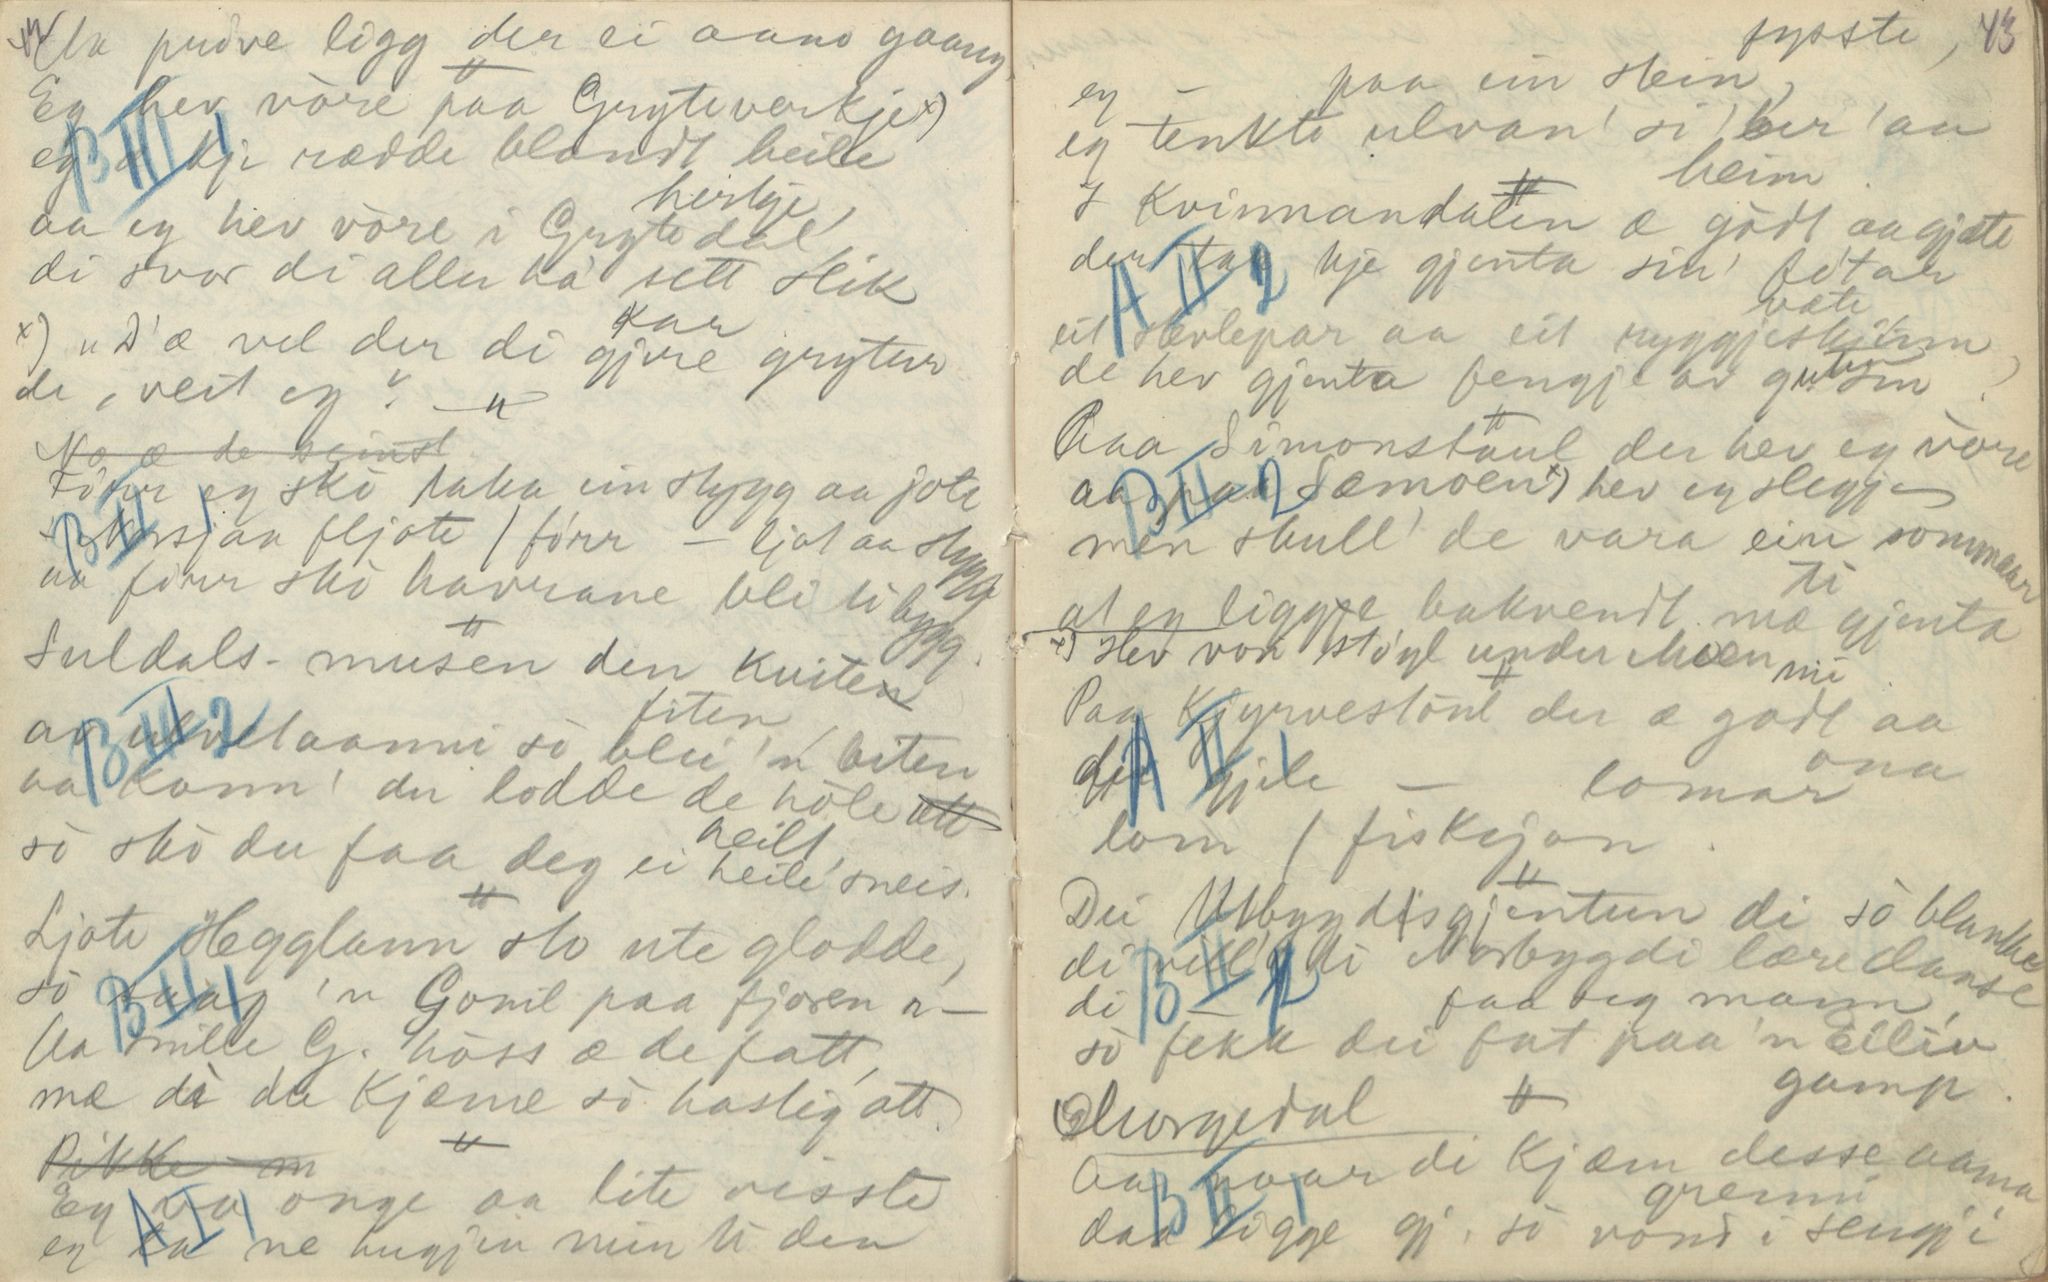 prøve ligg der ei aano gaang
Eg hev vòre paa Gryteverkje x)
eg æ kje rædde blandt beile
aa eg hev vòre i Grytedal,
herlje,
di svor di aller ha' sett slik
kar
x) "D'æ vel der di gjere grytur
de, veit eg"
No æ de seinst
Fórr eg skò taka ein stygg aa jote
fljote / fórr — ljot aa stygg
aa fórr skò havrane bli ti bygg.
Suldals-musen den kvite
fiten,
sò blei 'n biten
aa kann' du lodde de hòle
sò skò du faa deg ei heil
heile sneis.
Ljote Hegglann sto ute glodde,
sò saag 'n Gonil paa fjoren n—
Aa snille G. hòss æ de fatt,
mæ di du kjæme sò hastig att.
Pikke m
Eg va onge aa lite visste
eg la ne hugjin min ti den
fysste, 43
ey — paa ein stein,
eg tenkte ulvan' si' ber' aa
heim
I Kvinnandalen æ gòdt aa gjæte
der kan kje gjenta sin' fótar
væte
eit slevlepar aa eit ryggjeskinn,
de hev gjenta fengje av guten sin
Paa Simonstaul der hev eg vòre
aa paa Sæmoen x) hev eg slegje
men skull' de vara ein sommar
ti
at eg ligge bakvendt mæ gjenta
mi
x) stóyl under Moen
Paa Kjyrvestòul der æ godt aa
gjeile — lomar ona
lom / fiskjon.
Dei Utbygdsgjentun di sò blanke
di vill' ti Norbygdi lære danse
di faa seg mann,
sò fekk dei fat paa 'n Eiliv
gamp.
Morgedal
Aa naar di kjæm desse aama
grenni
daa ligge gj. sò vond i sengj'i